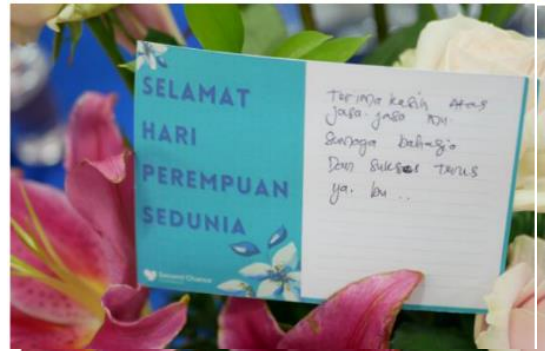 SELAMAT
HARI
PEREMPUAN
SEDUNIA
Second Chance
Terima kasih Atas
jasa-jasa mu.
Semoga bahagia
Dan sukses Terus
ya, bu...